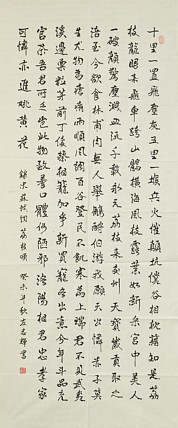 十里一置飛塵灰五里一堠兵火催顛坑仆谷相枕藉知是荔
枝龍眼來飛車跨山鶻橫海風枝露葉如新采宮中美人
一破顏驚塵濺血流千載永元荔枝來交州天寶歲貢取之
涪至今欲食林甫肉無人舉觴酹伯游我願天公憐赤子莫
生尤物為瘡痏雨順風調百谷登民不飢寒為上瑞君不見武夷
溪邊粟粒芽前丁後蔡相籠加爭新買寵各出意今年斗品充
官茶吾君所乏豈此物致養口體何陋邪洛陽相君忠孝家
可憐亦進姚黃花
錄宋蘇軾詞荔枝嘆 癸未年秋左志輝書